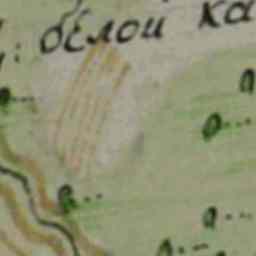 бѣлой ка